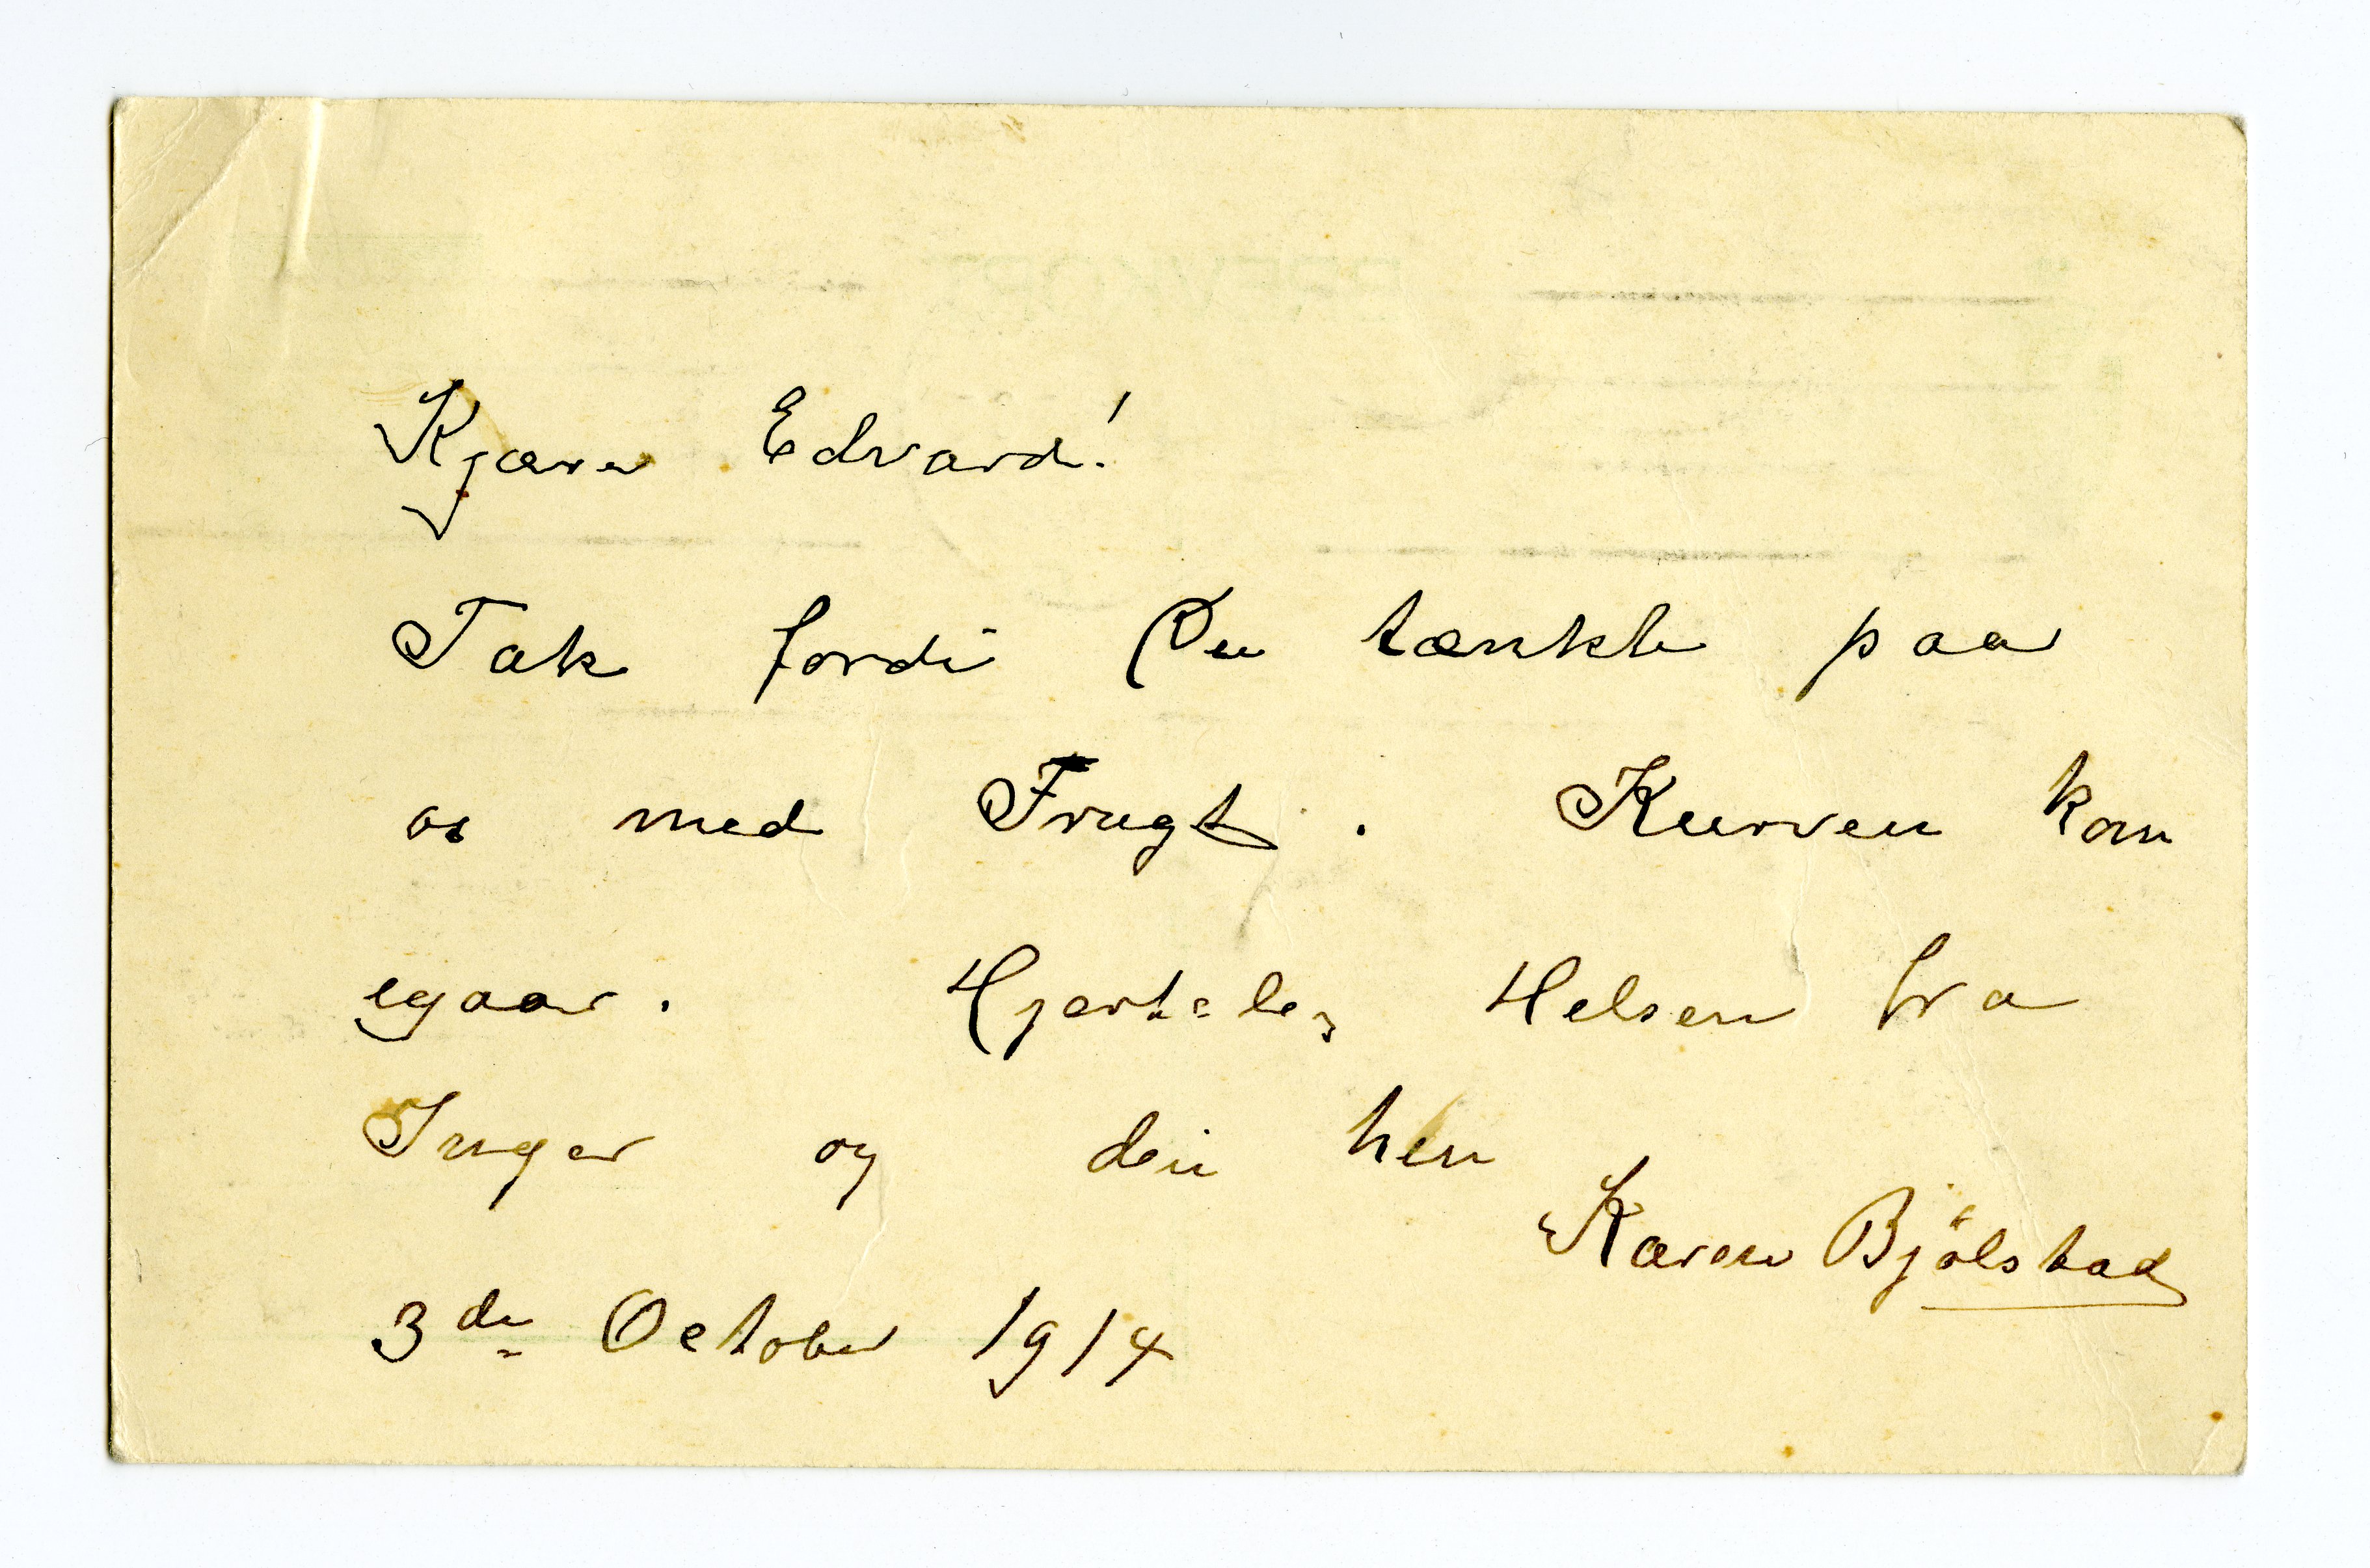 Kjære Edvard!
Tak fordi Du tænkte paa
os med Frugt. Kurven kom
igaar. Hjertelig Helsen fra
Inger og din hen
Karen Bjölstad
3die October 1914